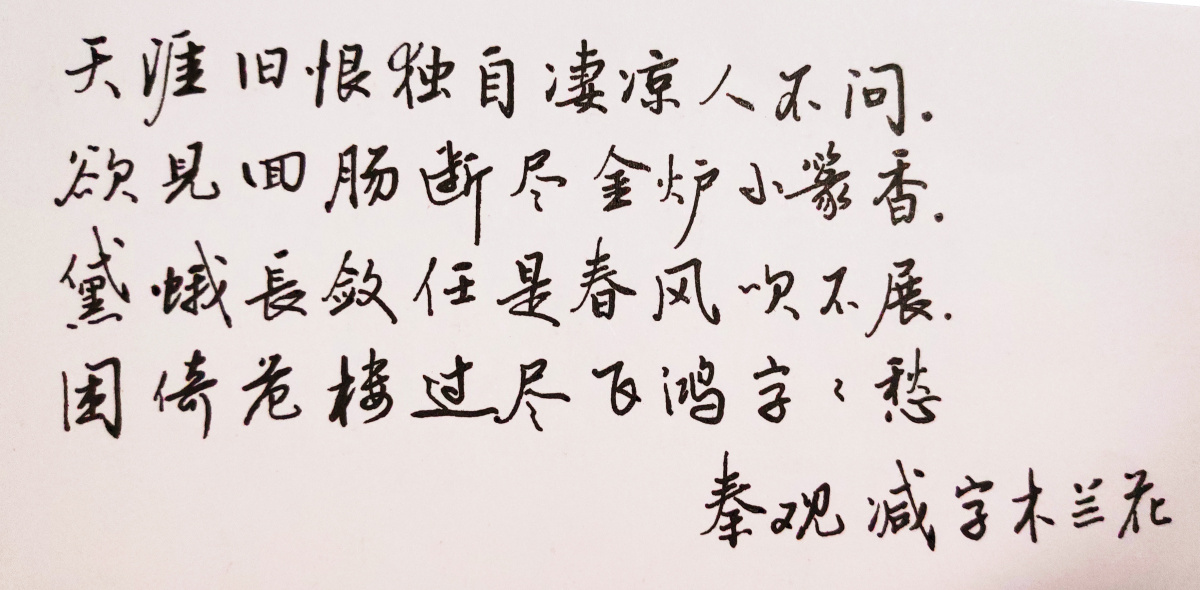 天涯旧恨独自凄凉人不问.
欲见回肠断尽金炉小篆香.
黛蛾長敛任是春风吹不展.
困倚危楼过尽飞鸿字々愁
秦观减字木兰花